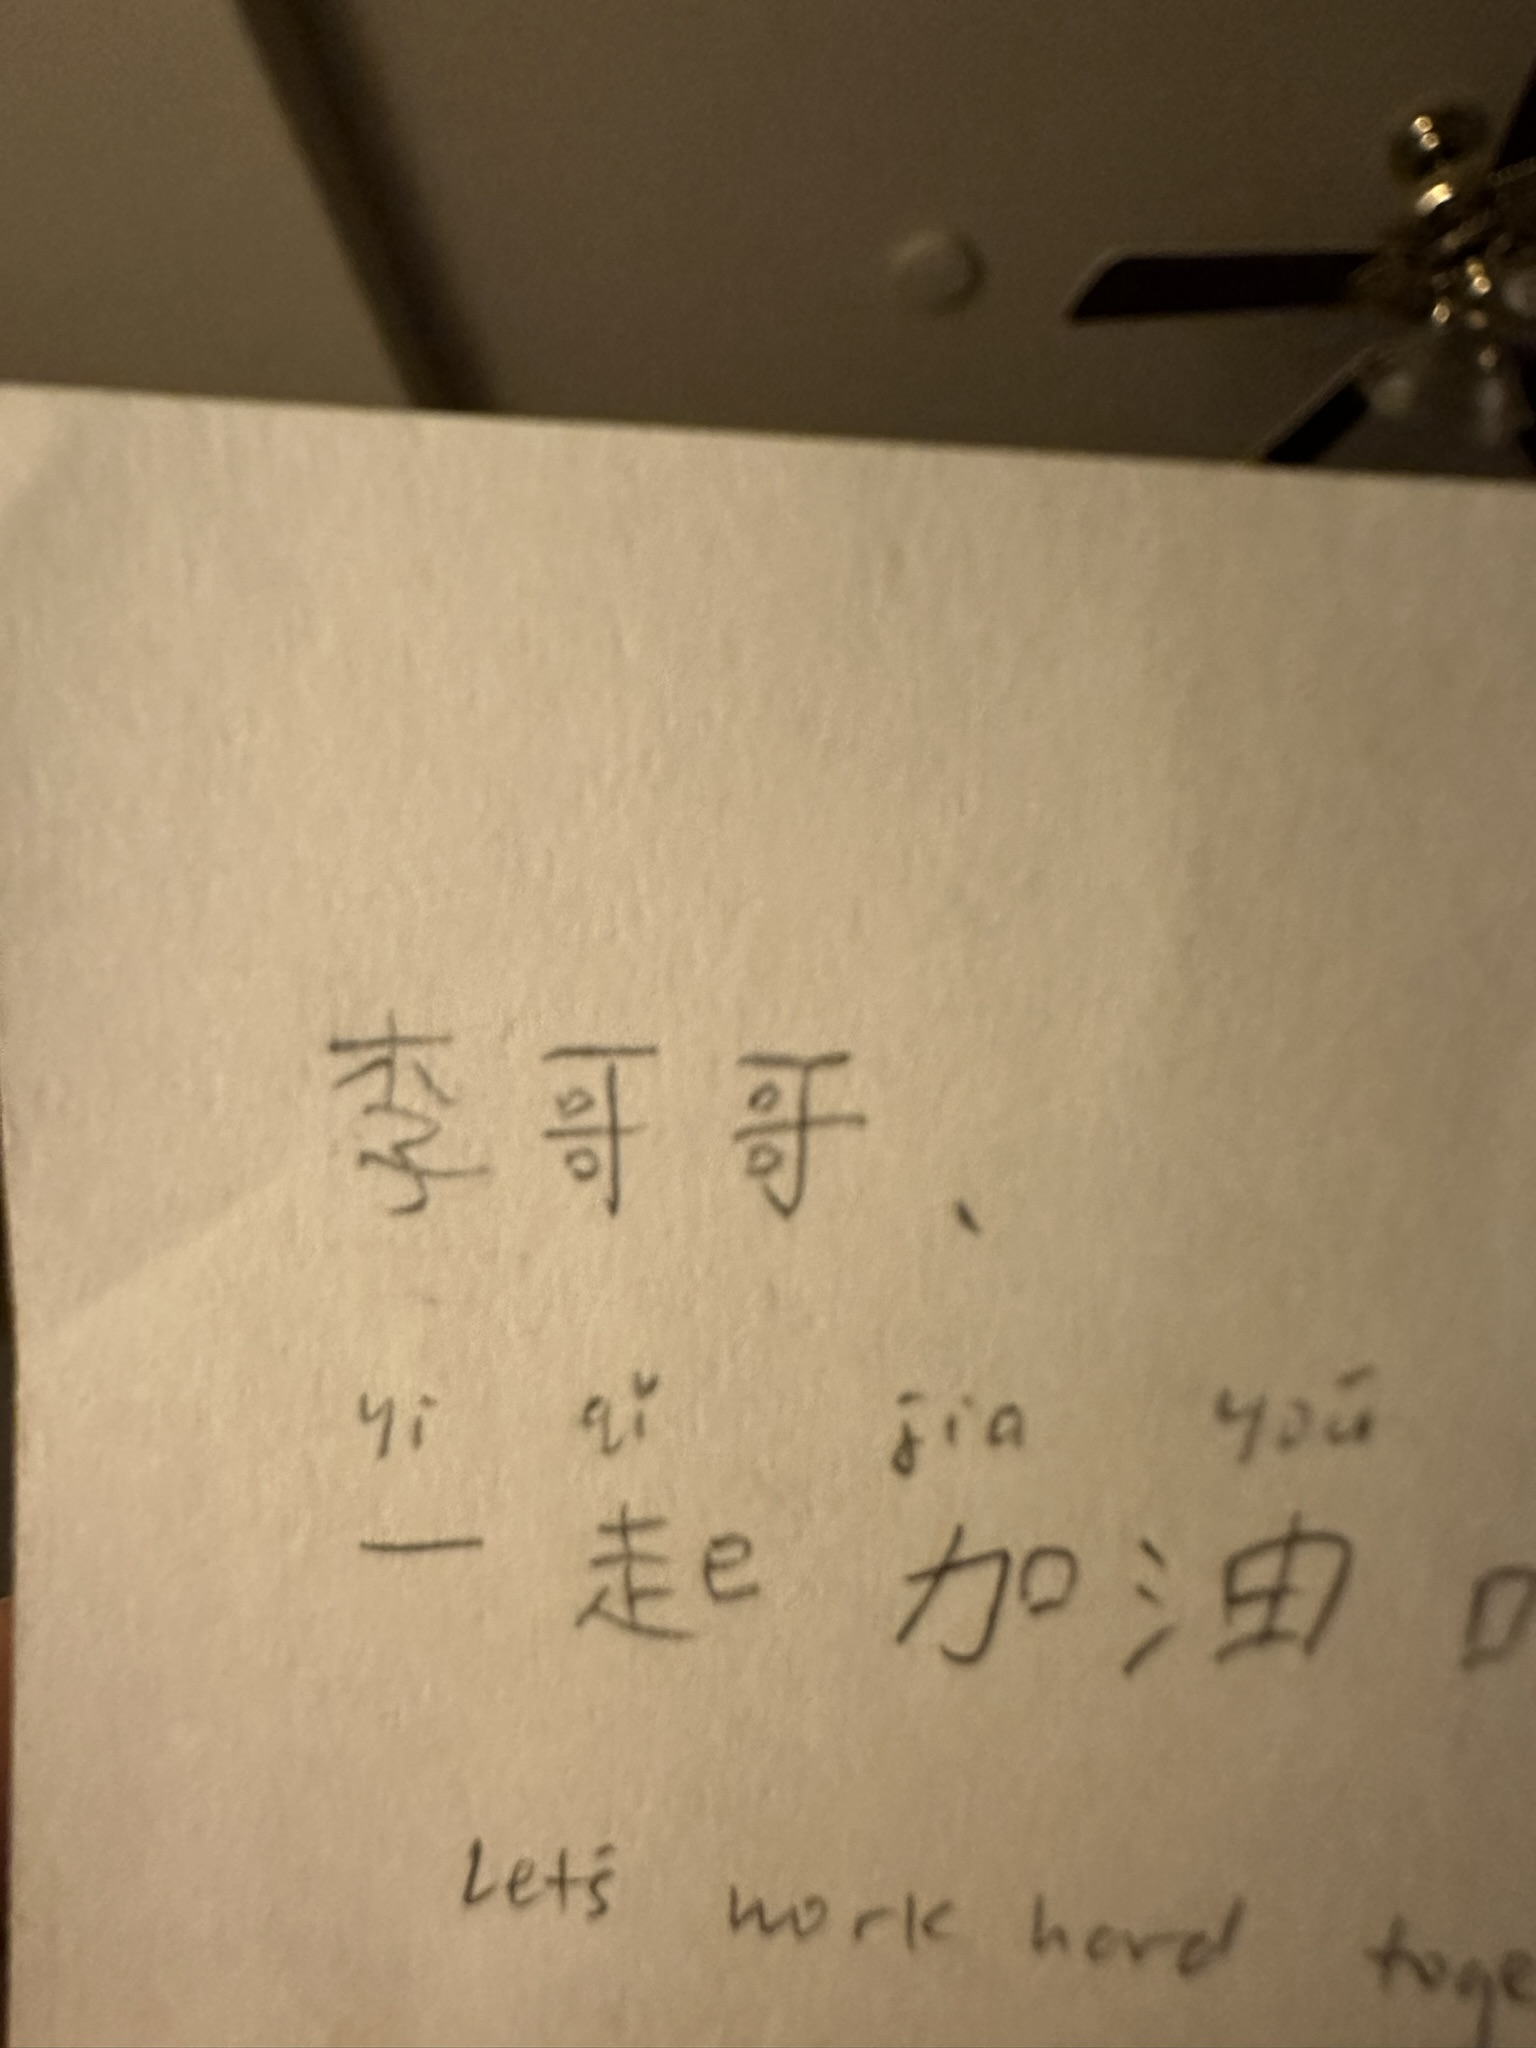 李哥哥、
yi qǐ jia yoū
一起加油
Let's work hard toge